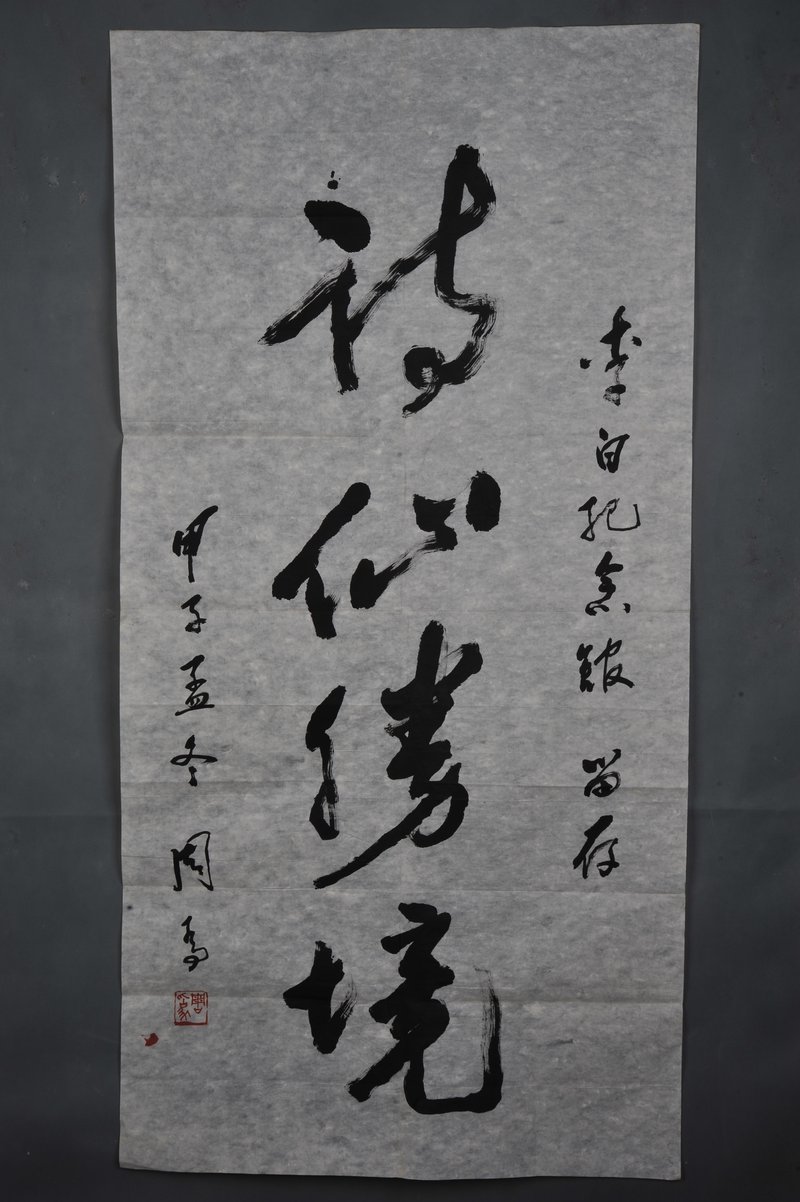 李白紀念館 留存
詩仙勝境
甲子孟冬 周